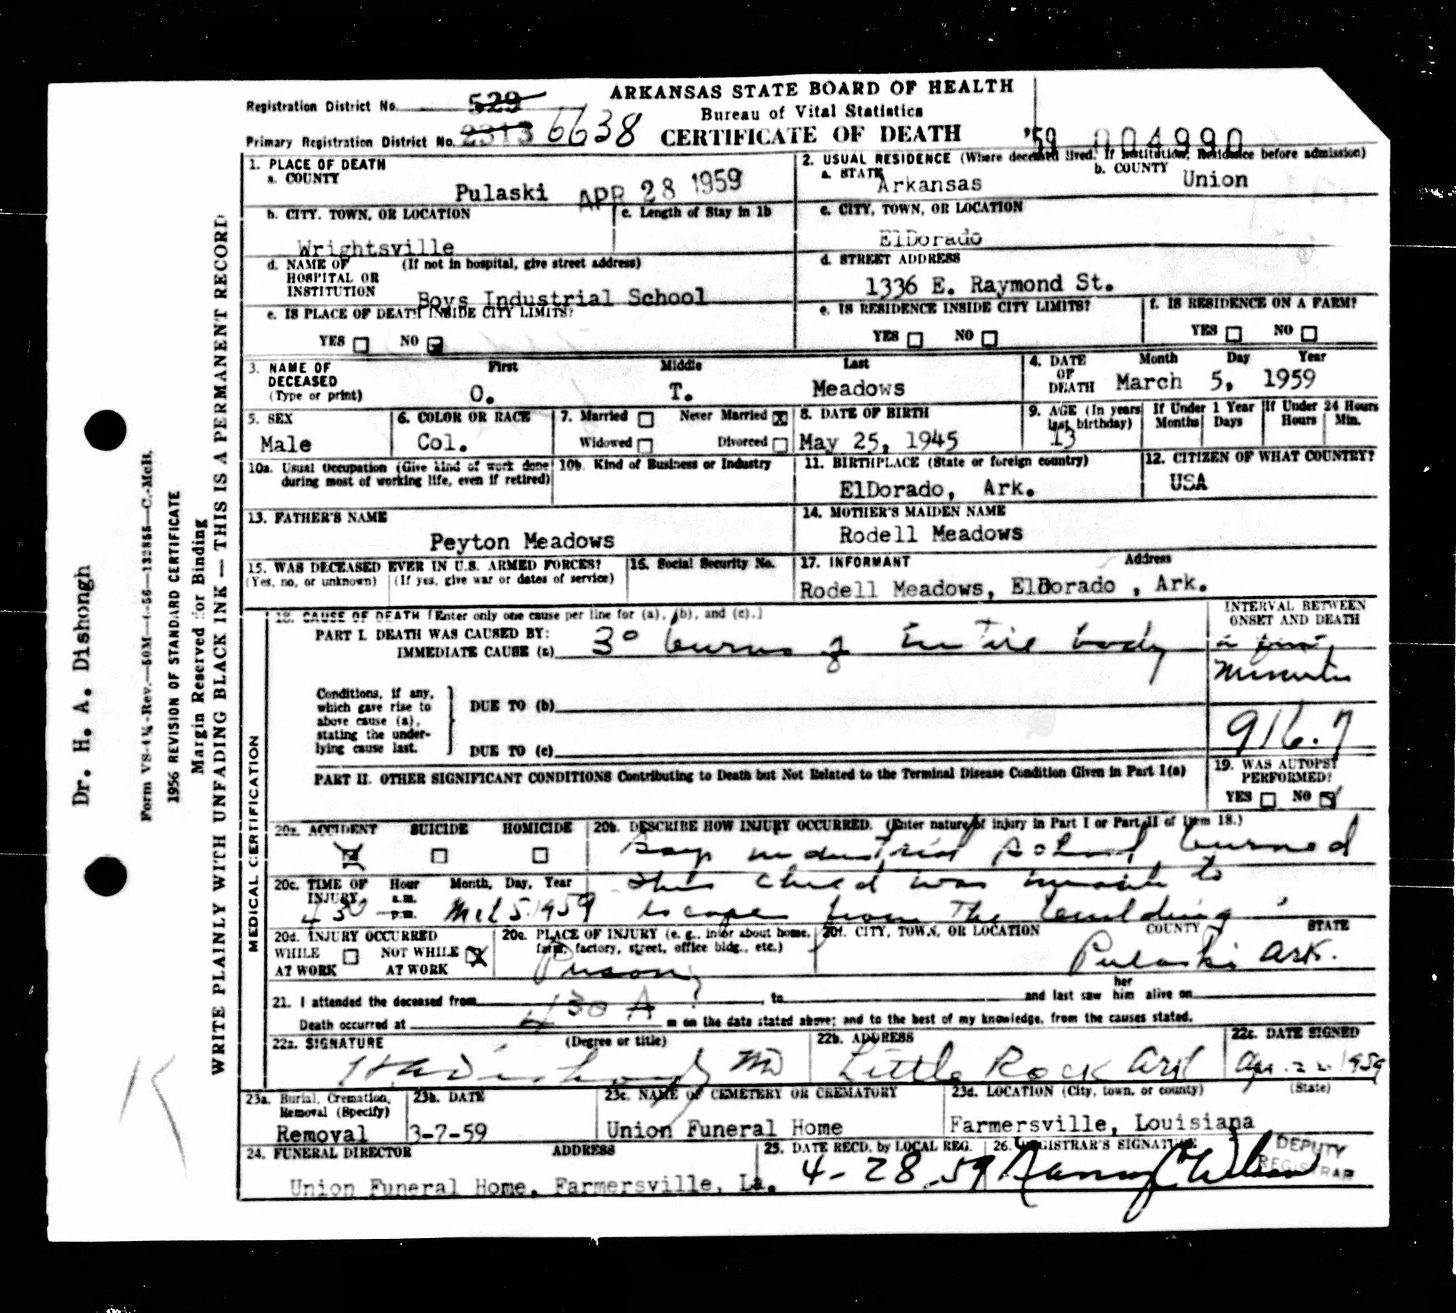 ARKANSAS STATE BOARD OF HEALTH
Bureau of Vital Statistics
CERTIFICATE OF DEATH
Registration District No. 529
Primary Registration District No. 2313 6638
'59 004990
1. PLACE OF DEATH
a. COUNTY
Pulaski APR 28 1959
2. USUAL RESIDENCE (Where deceased lived. If institution, Residence before admission)
a. STATE Arkansas
b. COUNTY Union
b. CITY, TOWN, OR LOCATION
Wrightsville
c. Length of Stay in 1b
c. CITY, TOWN, OR LOCATION
ElDorado
d. NAME OF HOSPITAL OR INSTITUTION (If not in hospital, give street address)
Boys Industrial School
d. STREET ADDRESS
1336 E. Raymond St.
e. IS PLACE OF DEATH INSIDE CITY LIMITS?
YES NO
e. IS RESIDENCE INSIDE CITY LIMITS?
YES NO
f. IS RESIDENCE ON A FARM?
YES NO
3. NAME OF DECEASED (Type or print)
First Middle Last
O. T. Meadows
4. DATE OF DEATH Month Day Year
March 5, 1959
5. SEX
Male
6. COLOR OR RACE
Col.
7. Married Never Married X
Widowed Divorced
8. DATE OF BIRTH
May 25, 1945
9. AGE (In years last birthday)
13
If Under 1 Year
Months Days
If Under 24 Hours
Hours Min.
10a. Usual Occupation (Give kind of work done during most of working life, even if retired)
10b. Kind of Business or Industry
11. BIRTHPLACE (State or foreign country)
ElDorado, Ark.
12. CITIZEN OF WHAT COUNTRY?
USA
13. FATHER'S NAME
Peyton Meadows
14. MOTHER'S MAIDEN NAME
Rodell Meadows
15. WAS DECEASED EVER IN U.S. ARMED FORCES?
(Yes, no, or unknown) (If yes, give war or dates of service)
16. Social Security No.
17. INFORMANT Address
Rodell Meadows, ElDorado , Ark.
18. CAUSE OF DEATH [Enter only one cause per line for (a), (b), and (c).]
INTERVAL BETWEEN ONSET AND DEATH
PART I. DEATH WAS CAUSED BY:
IMMEDIATE CAUSE (a) 3° burns of entire body
minutes
Conditions, if any, which gave rise to above cause (a), stating the underlying cause last.
DUE TO (b)
DUE TO (c)
916.7
PART II. OTHER SIGNIFICANT CONDITIONS Contributing to Death but Not Related to the Terminal Disease Condition Given in Part I(a)
19. WAS AUTOPSY PERFORMED?
YES NO
MEDICAL CERTIFICATION
20a. ACCIDENT SUICIDE HOMICIDE
20b. DESCRIBE HOW INJURY OCCURRED. (Enter nature of injury in Part I or Part II of Item 18.)
Boys industrial school burned
this child was unable to
escape from the building
20c. TIME OF INJURY Hour a.m. p.m. Month, Day, Year
4 30 Mch 5 1959
20d. INJURY OCCURRED
WHILE AT WORK NOT WHILE AT WORK X
20e. PLACE OF INJURY (e. g., in or about home, farm, factory, street, office bldg., etc.)
Prison
20f. CITY, TOWN, OR LOCATION COUNTY STATE
Pulaski Ark.
21. I attended the deceased from , to and last saw her him alive on
Death occurred at 4 30 A m on the date stated above; and to the best of my knowledge, from the causes stated.
22a. SIGNATURE (Degree or title)
HA Dishongh MD
22b. ADDRESS
Little Rock Ark
22c. DATE SIGNED
Apr. 22 1959
23a. Burial, Cremation, Removal (Specify)
Removal
23b. DATE
3-7-59
23c. NAME OF CEMETERY OR CREMATORY
Union Funeral Home
23d. LOCATION (City, town, or county) (State)
Farmersville, Louisiana
24. FUNERAL DIRECTOR ADDRESS
Union Funeral Home, Farmersville, La.
25. DATE RECD. by LOCAL REG.
4-28-59
26. REGISTRAR'S SIGNATURE
DEPUTY REGISTRAR
Dr. H. A. Dishongh
1956 REVISION OF STANDARD CERTIFICATE
Margin Reserved for Binding
WRITE PLAINLY WITH UNFADING BLACK INK — THIS IS A PERMANENT RECORD
K